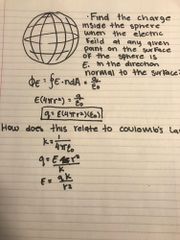 · Find the charge
inside the sphere
when the electric
feild at any given
point on the surface
of the sphere is
E. in the direction
normal to the surface.
ΦE = ∮E·ndA = q/ε₀
E(4πr²) = q/ε₀
q = E(4πr²)(ε₀)
How does this relate to coulomb's La
K = 1/4πε₀
q = E r²/K
E = qK/r²